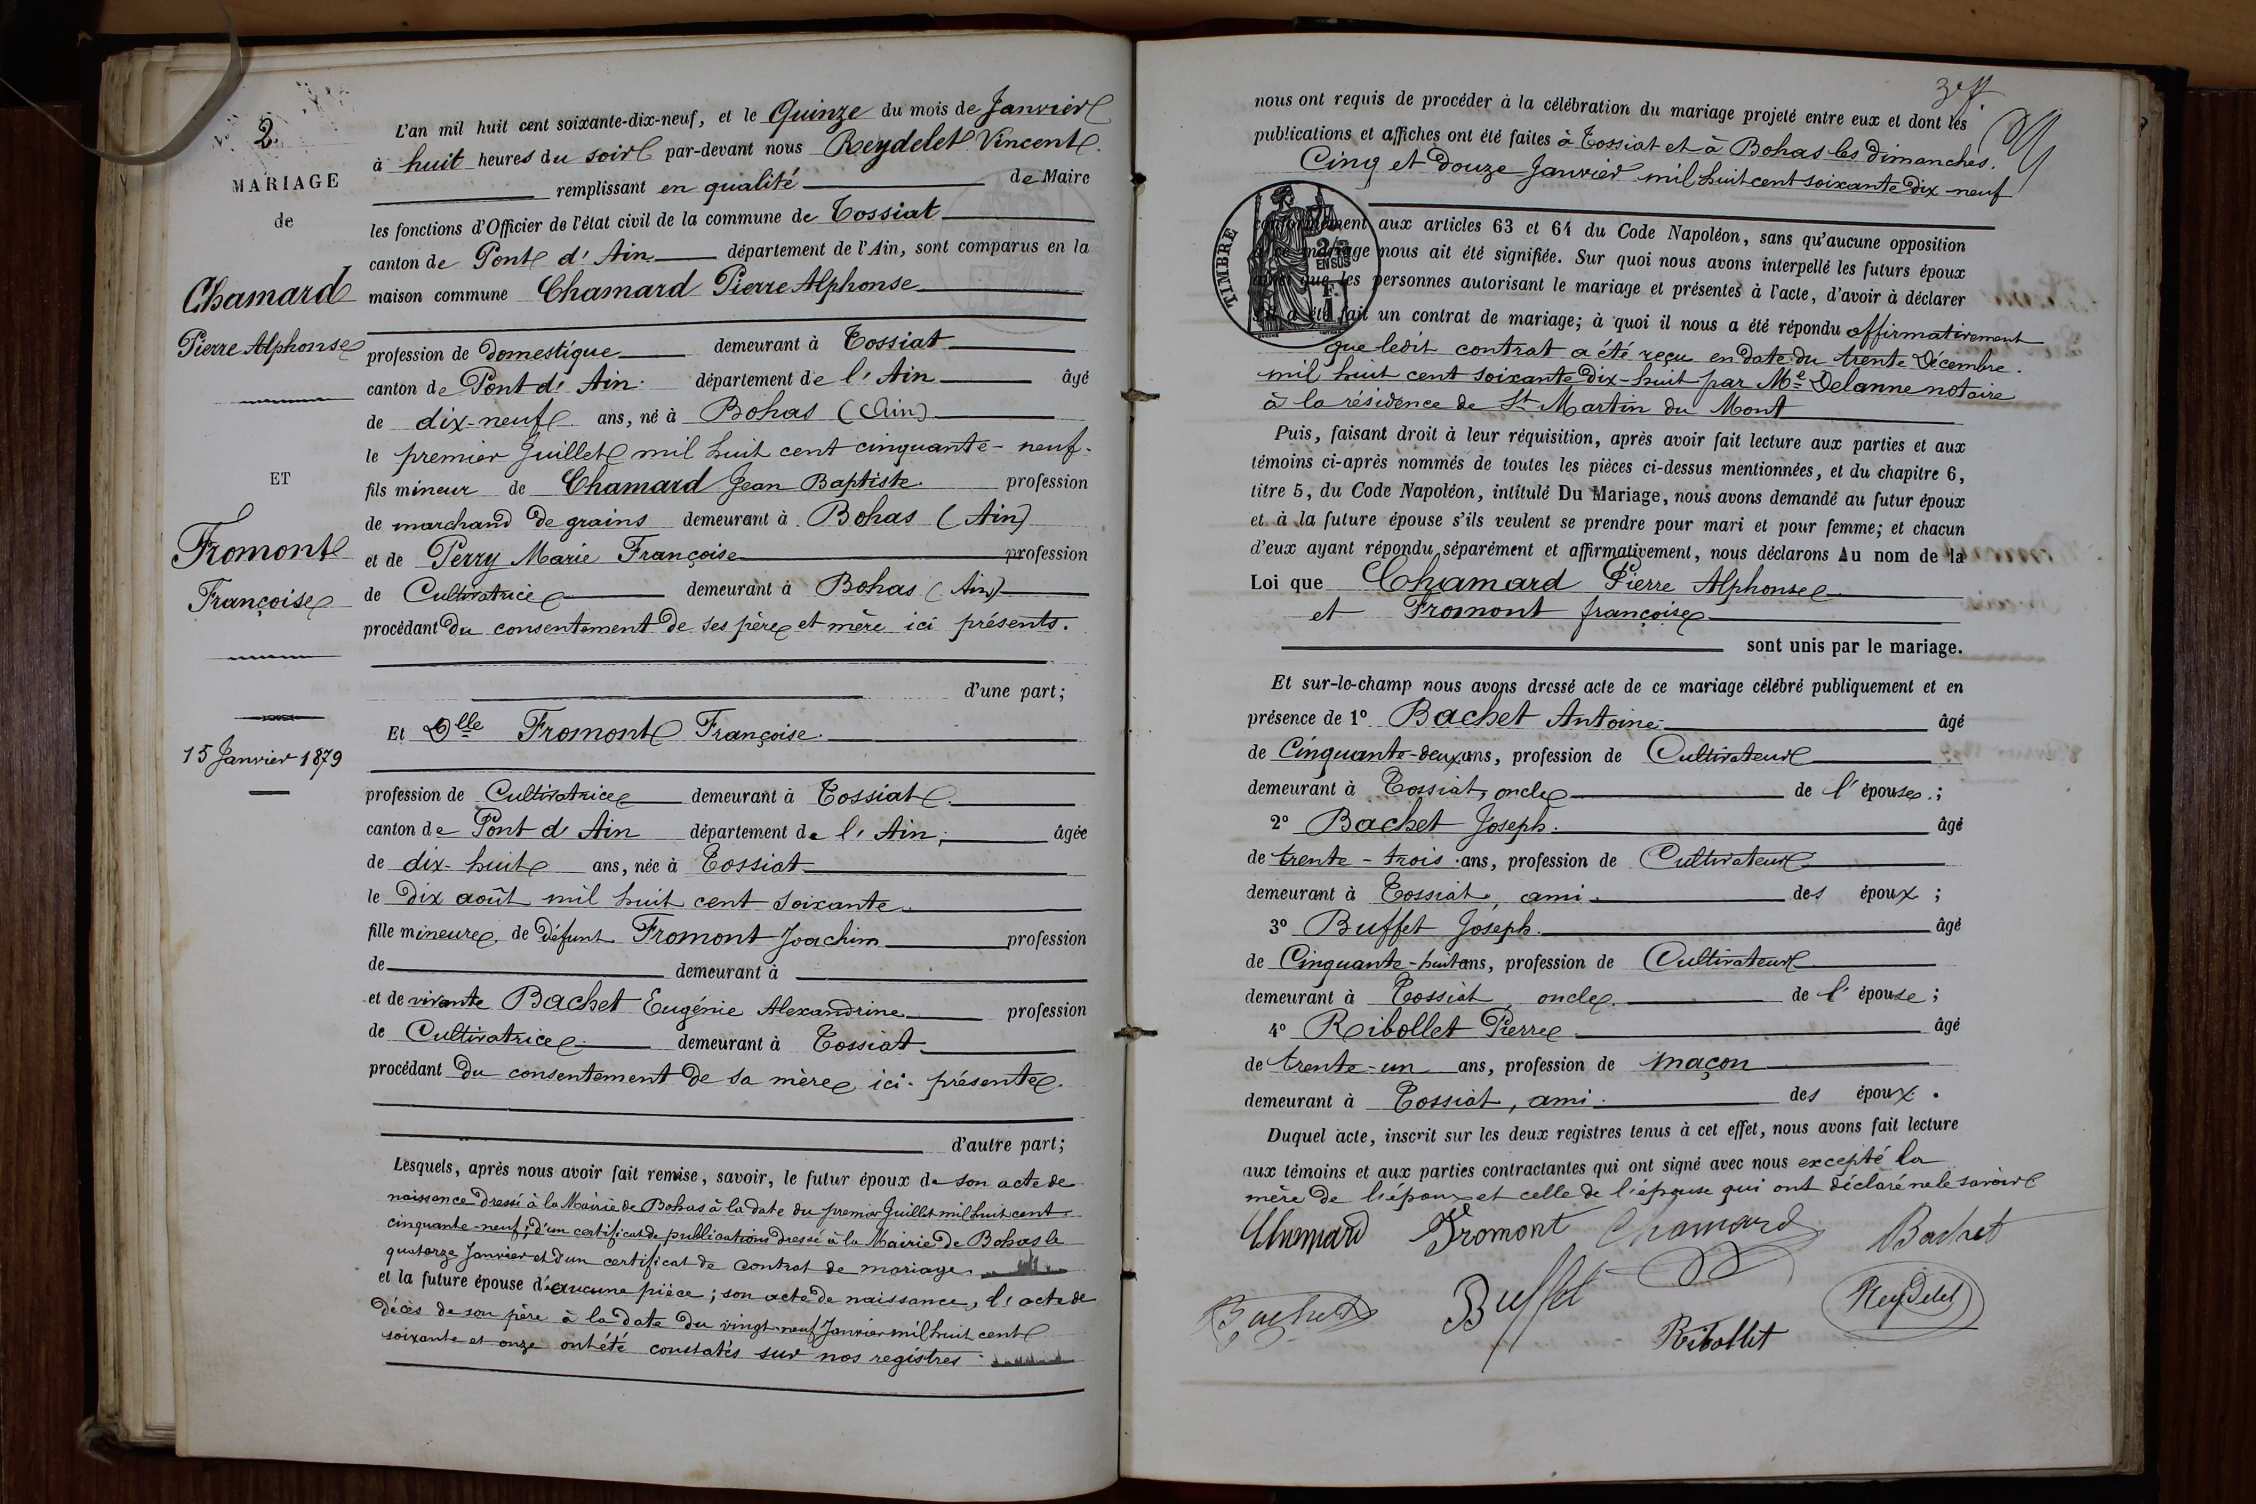 2
MARIAGE
de
Chamard
Pierre Alphonse
ET
Fromont
Françoise
15 Janvier 1879
L'an mil huit cent soixante-dix-neuf, et le Quinze du mois de Janvier
à huit heures du soir par-devant nous Reydelet Vincent
remplissant en qualité de Maire
les fonctions d'Officier de l'état civil de la commune de Tossiat
canton de Pont d'Ain département de l'Ain, sont comparus en la
maison commune Chamard Pierre Alphonse
profession de domestique demeurant à Tossiat
canton de Pont d'Ain département de l'Ain âgé
de dix-neuf ans, né à Bohas (Ain)
le premier Juillet mil huit cent cinquante-neuf.
fils mineur de Chamard Jean Baptiste profession
de marchand de grains demeurant à Bohas (Ain)
et de Perry Marie Françoise profession
de Cultivatrice demeurant à Bohas (Ain)
procédant du consentement de ses père et mère ici présents.
d'une part;
Et Dlle Fromont Françoise.
profession de Cultivatrice demeurant à Tossiat
canton de Pont d'Ain département de l'Ain; âgée
de dix-huit ans, née à Tossiat
le dix août mil huit cent soixante
fille mineure de défunt Fromont Joachim profession
de demeurant à
et de vivante Bachet Eugénie Alexandrine profession
de Cultivatrice demeurant à Tossiat
procédant du consentement de sa mère ici présente.
d'autre part;
Lesquels, après nous avoir fait remise, savoir, le futur époux de son acte de
naissance dressé à la Mairie de Bohas à la date du premier Juillet mil huit cent
cinquante-neuf; d'un certificat de publications dressé à la Mairie de Bohas le
quatorze Janvier et d'un certificat de contrat de mariage
et la future épouse d'aucune pièce; son acte de naissance, l'acte de
décès de son père à la date du vingt-neuf Janvier mil huit cent
soixante et onze ont été constatés sur nos registres
nous ont requis de procéder à la célébration du mariage projeté entre eux et dont les
publications et affiches ont été faites à Tossiat et à Bohas les dimanches
Cinq et douze Janvier mil huit cent soixante dix-neuf
TIMBRE
2/10
EN SUS
1 F.
conformément aux articles 63 et 64 du Code Napoléon, sans qu'aucune opposition
à ce mariage nous ait été signifiée. Sur quoi nous avons interpellé les futurs époux
ainsi que les personnes autorisant le mariage et présentes à l'acte, d'avoir à déclarer
s'il a été fait un contrat de mariage; à quoi il nous a été répondu affirmativement
que ledit contrat a été reçu en date du trente Décembre
mil huit cent soixante dix-huit par Me Delanne notaire
à la résidence de St Martin du Mont
Puis, faisant droit à leur réquisition, après avoir fait lecture aux parties et aux
témoins ci-après nommés de toutes les pièces ci-dessus mentionnées, et du chapitre 6,
titre 5, du Code Napoléon, intitulé Du Mariage, nous avons demandé au futur époux
et à la future épouse s'ils veulent se prendre pour mari et pour femme; et chacun
d'eux ayant répondu séparément et affirmativement, nous déclarons Au nom de la
Loi que Chamard Pierre Alphonse
et Fromont françoise
sont unis par le mariage.
Et sur-le-champ nous avons dressé acte de ce mariage célébré publiquement et en
présence de 1° Bachet Antoine âgé
de Cinquante-deux ans, profession de Cultivateur
demeurant à Tossiat, oncle de l'épouse;
2° Bachet Joseph. âgé
de trente-trois ans, profession de Cultivateur
demeurant à Tossiat, ami des époux;
3° Buffet Joseph. âgé
de Cinquante-huit ans, profession de Cultivateur
demeurant à Tossiat, oncle de l'épouse;
4° Ribollet Pierre âgé
de trente-un ans, profession de maçon
demeurant à Tossiat, ami des époux.
Duquel acte, inscrit sur les deux registres tenus à cet effet, nous avons fait lecture
aux témoins et aux parties contractantes qui ont signé avec nous excepté la
mère de l'époux et celle de l'épouse qui ont déclaré ne le savoir
Chamard Fromont Chamard Bachet
Bachet Buffet Ribollet Reydelet